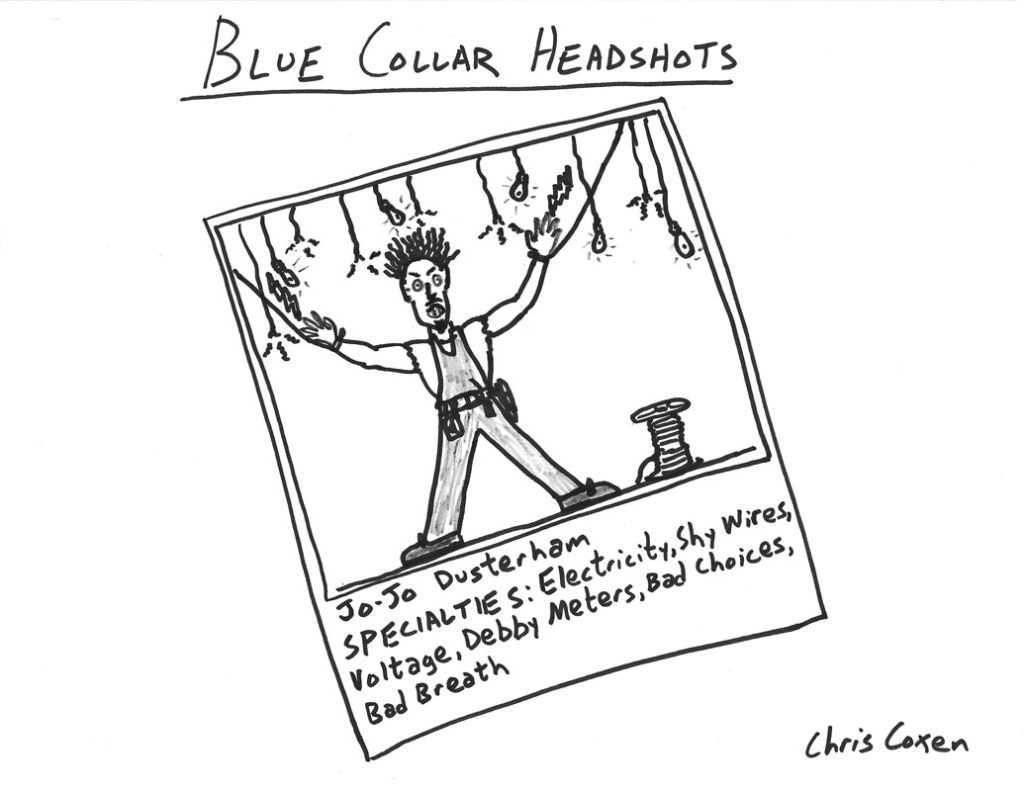 BLUE COLLAR HEADSHOTS
Jo-Jo Dusterham
SPECIALTIES: Electricity, Shy Wires,
Voltage, Debby Meters, Bad Choices,
Bad Breath
Chris Coxen